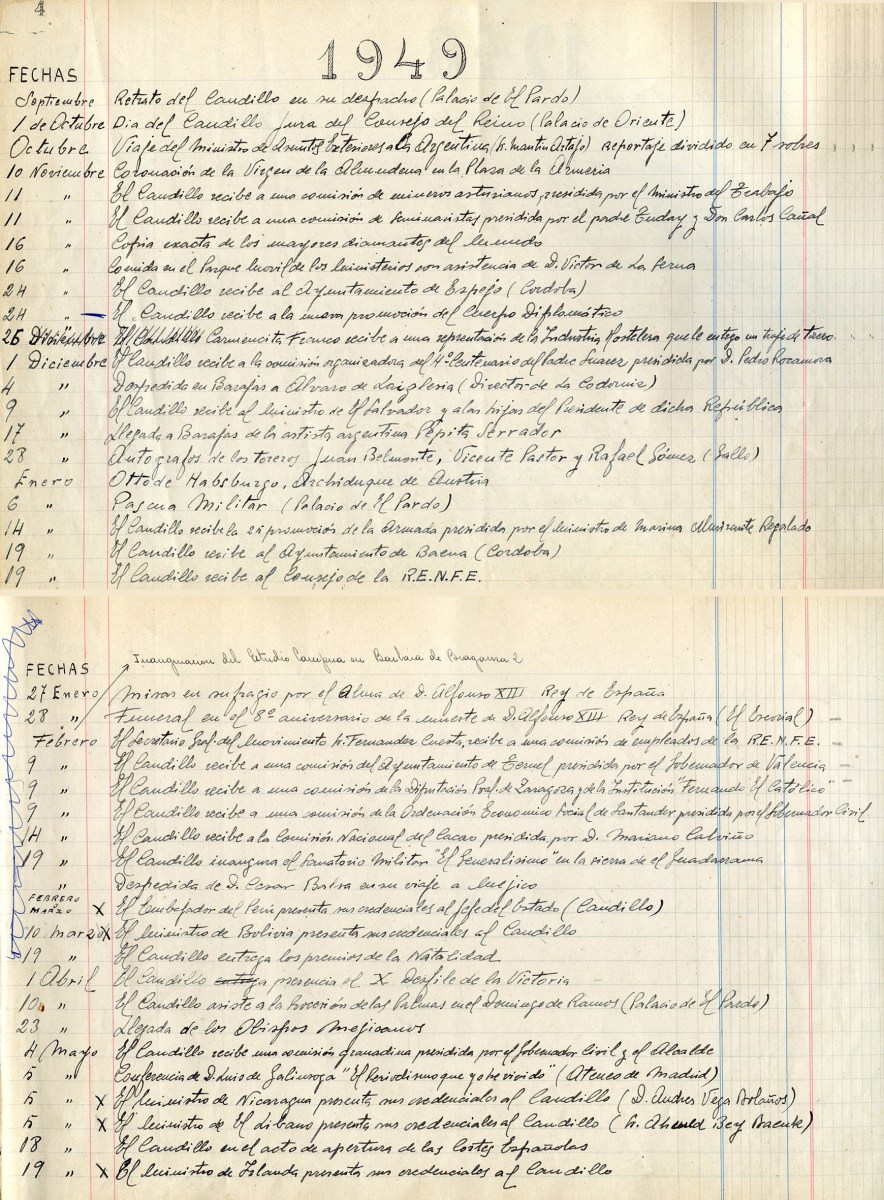 4
1949
FECHAS
Septiembre Retrato del Caudillo en su despacho (Palacio de El Pardo)
1 de Octubre Dia del Caudillo Jura del Consejo del Reino (Palacio de Oriente)
Octubre Viaje del Ministro de Asuntos Exteriores a la Argentina (Sr. Martin Artajo) Reportaje dividido en 7 sobres
10 Noviembre Coronación de la Virgen de la Almudena en la Plaza de la Armeria
11 " El Caudillo recibe a una comisión de mineros asturianos, presidida por el Ministro del Trabajo
11 " El Caudillo recibe a una comisión de seminaristas presidida por el padre y Don Carlos Cañal
16 " Copia exacta de los mayores diamantes del mundo
16 " Comida en el Parque Movil de los Ministerios con asistencia de D. Victor de La Serna
24 " El Caudillo recibe al Ayuntamiento de Espejo (Cordoba)
24 " El Caudillo recibe a la nueva promoción del Cuerpo Diplomático
26 Carmencita Franco recibe a una representación de la Industria Hostelera que le entrego un traje de torero
1 Diciembre El Caudillo recibe a la comisión organizadora del 4º Centenario del Padre Suarez presidida por D. Pedro Rocamora
4 " Despedida en Barajas a Alvaro de Laiglesia (Director de La Codorniz)
9 " El Caudillo recibe al Ministro de El Salvador y a las hijas del Presidente de dicha República
17 " Llegada a Barajas de la artista argentina Pepita Serrador
28 " Autografos de los toreros Juan Belmonte, Vicente Pastor y Rafael Gómez (Gallo)
Enero Otto de Habsburgo, Archiduque de Austria
6 " Pascua Militar (Palacio de El Pardo)
14 " El Caudillo recibe la 2ª promoción de la Armada presidida por el Ministro de Marina Almirante Regalado
19 " El Caudillo recibe al Ayuntamiento de Baena (Cordoba)
19 " El Caudillo recibe al Consejo de la R.E.N.F.E.
Inauguracion del Estudio Campua en Barbara de Braganza 2
FECHAS
27 Enero Misas en sufragio por el Alma de D. Alfonso XIII Rey de España
28 " Funeral en el 8º aniversario de la muerte de D. Alfonso XIII Rey de España (El Escorial)
Febrero El Secretario Gral. del Movimiento Sr. Fernandez Cuesta, recibe a una comisión de empleados de la R.E.N.F.E.
9 " El Caudillo recibe a una comisión del Ayuntamiento de Teruel presidida por el Gobernador de Valencia
9 " El Caudillo recibe a una comisión de la Diputación de Zaragoza y de la Institución "Fernando El Católico"
9 " El Caudillo recibe a una comisión de la Ordenación Economico Social de Santander presidida por el Gobernador Civil
14 " El Caudillo recibe a la Comisión Nacional del Cacao presidida por D. Mariano Calviño
19 " El Caudillo inaugura el Sanatorio Militar "El Generalisimo" en la sierra de el Guadarrama
" Despedida de D. Cesar en su viaje a Mejico
FEBRERO o MARZO X El Embajador del Perú presenta sus credenciales al Jefe del Estado (Caudillo)
10 Marzo X El Ministro de Bolivia presenta sus credenciales al Caudillo
19 " El Caudillo entrega los premios de la Natalidad
1 Abril El Caudillo presencia el X Desfile de la Victoria
10 " El Caudillo asiste a la Procesión de las Palmas en el Domingo de Ramos (Palacio de El Pardo)
23 " Llegada de los Obispos mejicanos
4 Mayo El Caudillo recibe una comisión granadina presidida por el Gobernador Civil y el Alcalde
5 " Conferencia de D. Luis de Galinsoga "El Periodismo que yo he vivido" (Ateneo de Madrid)
5 " X El Ministro de Nicaragua presenta sus credenciales al Caudillo (D. Andres Vega Bolaños)
5 " X El Ministro de El Libano presenta sus credenciales al Caudillo (Sr. Bey)
18 " El Caudillo en el acto de apertura de las Cortes Españolas
19 " X El Ministro de Islanda presenta sus credenciales al Caudillo